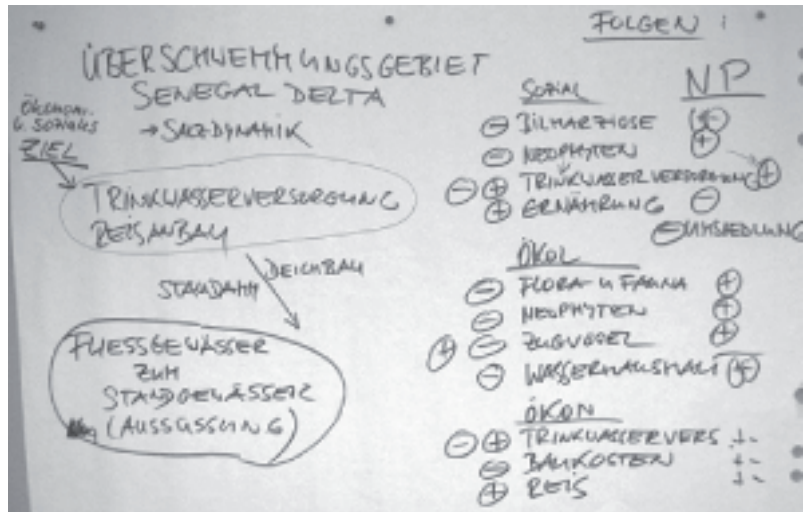 ÜBERSCHWEMMUNGSGEBIET
SENEGAL DELTA
→ SALZDYNAMIK
ÖKONOM.
U. SOZIALES
ZIEL
TRINKWASSERVERSORGUNG
REISANBAU
STAUDAMM DEICHBAU
FLIESSGEWÄSSER
ZUM
STANDGEWÄSSER
(AUSSÜSSUNG)
FOLGEN :
SOZIAL NP
⊖ BILHARZIOSE (⊖)
⊖ NEOPHYTEN ⊕
⊖ ⊕ TRINKWASSERVERSORGUNG ⊕
⊕ ERNÄHRUNG ⊖
⊖ UMSIEDLUNG
ÖKOL
⊖ FLORA- U FAUNA ⊕
⊖ NEOPHYTEN ⊕
⊕ ⊖ ZUGVÖGEL ⊕
⊖ WASSERHAUSHALT (⊕)
ÖKON
⊖ ⊕ TRINKWASSERVERS +-
⊖ BAUKOSTEN +-
⊕ REIS +-